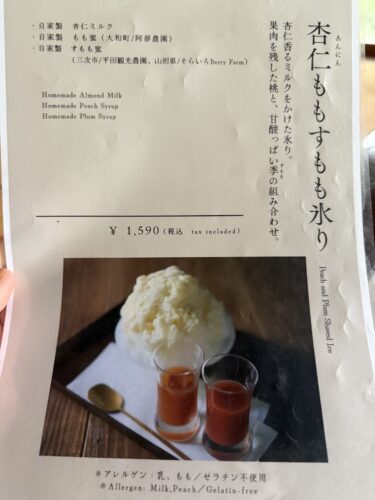 杏仁ももすもも氷り
あんにん
Peach and Plum Shaved Ice
杏仁香るミルクをかけた氷り。
果肉を残した桃と、甘酸っぱい李の組み合わせ。
すもも
・自家製　杏仁ミルク
・自家製　もも蜜（大和町/阿部農園）
・自家製　すもも蜜
（三次市/平田観光農園、山形県/そらいろBerry Farm）
Homemade Almond Milk
Homemade Peach Syrup
Homemade Plum Syrup
¥ 1,590（税込 tax included）
※アレルゲン：乳、もも／ゼラチン不使用
※Allergen: Milk,Peach／Gelatin-free